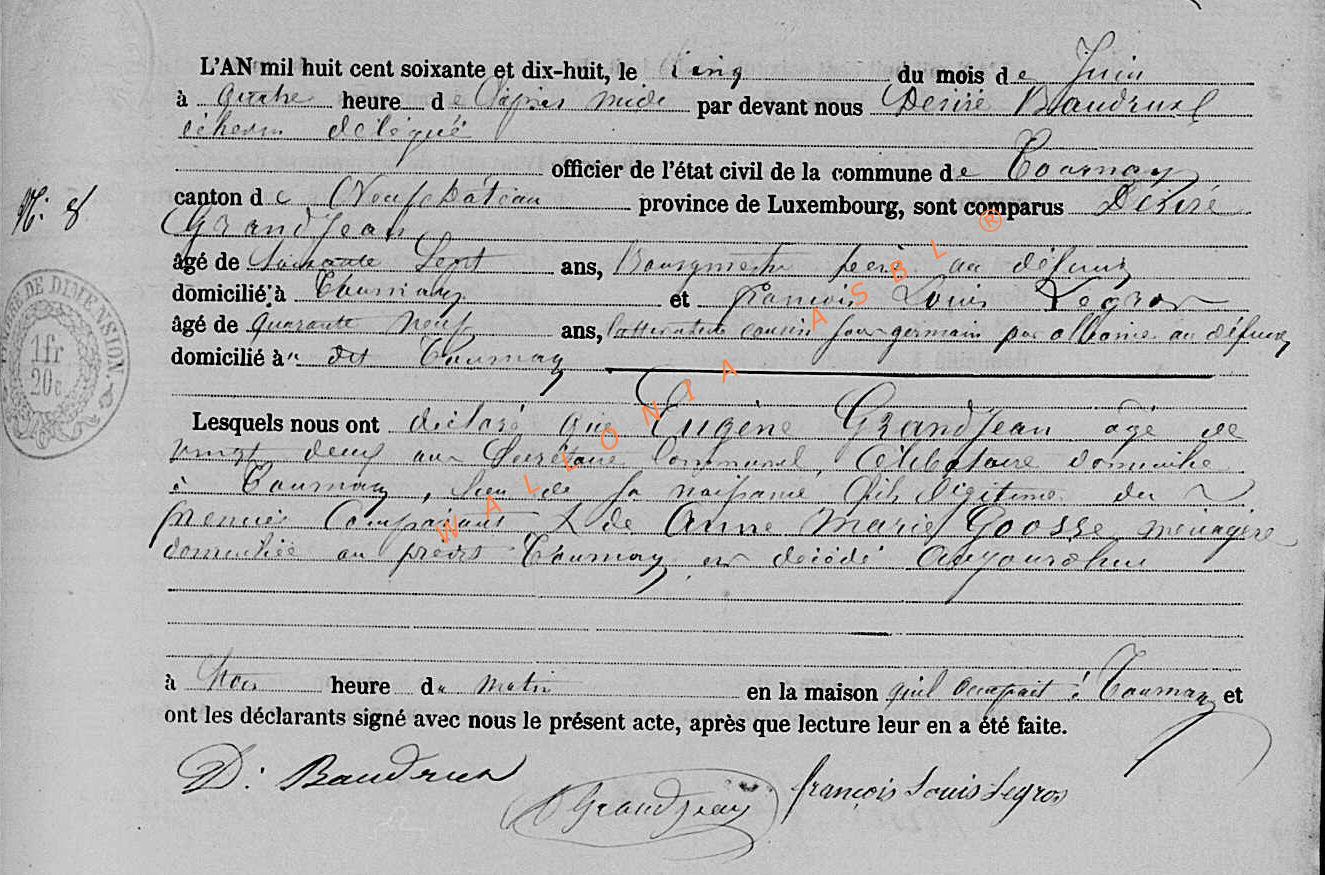 L'AN mil huit cent soixante et dix-huit, le Cinq du mois de Juin
à quatre heure de l'après midi par devant nous Désiré Baudrux
échevin délégué
officier de l'état civil de la commune de Tournay
N: 8
canton de Neufchâteau province de Luxembourg, sont comparus Désiré
GrandJean
âgé de Soixante Sept ans, Bourgmestre père au défunt
domicilié à Tournay et françois Louis Legros
âgé de quarante neuf ans, cousin germain par au défunt
domicilié à dit Tournay
Lesquels nous ont déclaré que Eugène GrandJean âgé de
vingt deux ans Secrétaire Communal, Célibataire domicilié
à Tournay, lieu de sa naissance fils légitime du
premier Comparant & de Anne Marie Goosse ménagère
domiciliée au Tournay est décédé Aujourdhui
à trois heure du matin en la maison qu'il occupait à Tournay et
ont les déclarants signé avec nous le présent acte, après que lecture leur en a été faite.
D: Baudrux
D GrandJean
françois Louis Legros
TIMBRE DE DIMENSION
1fr
20c
WALLONIA ASBL ®